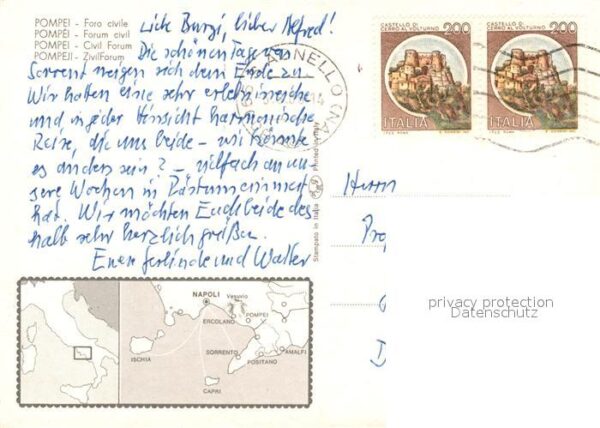 POMPEI - Foro civile
POMPÉI - Forum civil
POMPEI - Civil Forum
POMPEJI - ZivilForum
Liebe Burgi, lieber Alfred!
Die schönen Tage von
Sorrent neigen sich dem Ende zu.
Wir hatten eine sehr erlebnisreiche
und in jeder Hinsicht harmonische
Reise, die uns beide - wie könnte
es anders sein? - vielfach an un-
sere Wochen in Pästum erinnert
hat. Wir möchten Euch beide des-
halb sehr herzlich grüßen.
Euere Gerlinde und Walter
CASTELLO DI
CERRO AL VOLTURNO
200
ITALIA
CASTELLO DI
CERRO AL VOLTURNO
200
ITALIA
Printed in Italy
Stampato in Italia
Herrn
privacy protection
Datenschutz
NAPOLI
Vesuvio
ERCOLANO
POMPEI
ISCHIA
SORRENTO
POSITANO
AMALFI
CAPRI